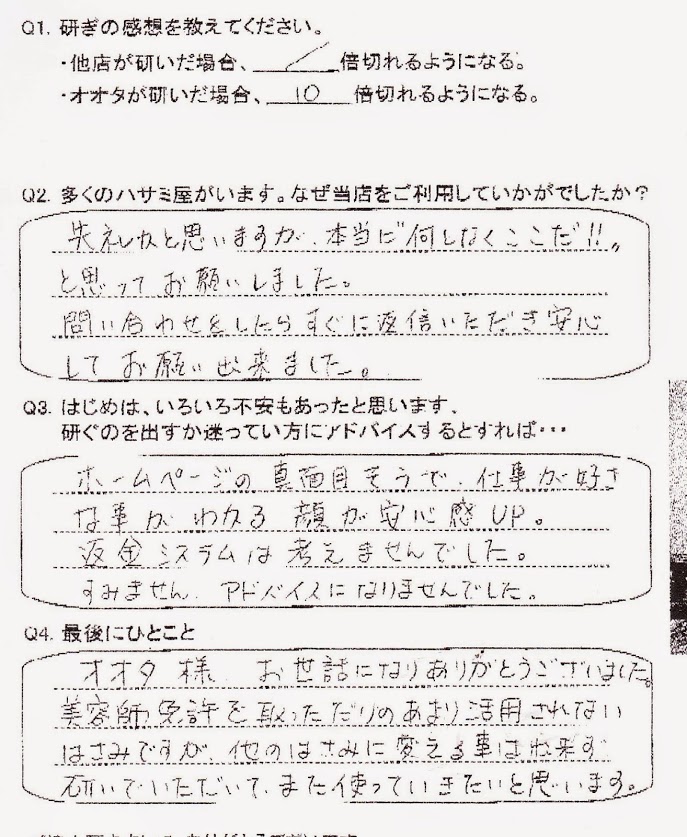 Q1. 研ぎの感想を教えてください。
・他店が研いだ場合、／倍切れるようになる。
・オオタが研いだ場合、10倍切れるようになる。
Q2. 多くのハサミ屋がいます。なぜ当店をご利用していかがでしたか？
失礼かと思いますが、本当に"何となくここだ!!"
と思ってお願いしました。
問い合わせをしたらすぐに返信いただき安心
してお願い出来ました。
Q3. はじめは、いろいろ不安もあったと思います、
研ぐのを出すか迷ってい方にアドバイスするとすれば・・・
ホームページの真面目そうで、仕事が好き
な事がわかる 顔が安心感UP。
返金システムは考えませんでした。
すみません、アドバイスになりませんでした。
Q4. 最後にひとこと
オオタ様 お世話になりありがとうございました。
美容師免許を取っただけのあまり活用されない
はさみですが、他のはさみに変える事は出来ず
研いでいただいて、また使っていきたいと思います。